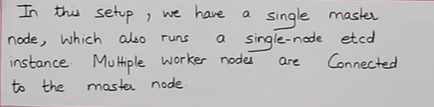 In this setup, we have a single master
node, which also runs a single-node etcd
instance. Multiple worker nodes are Connected
to the master node.